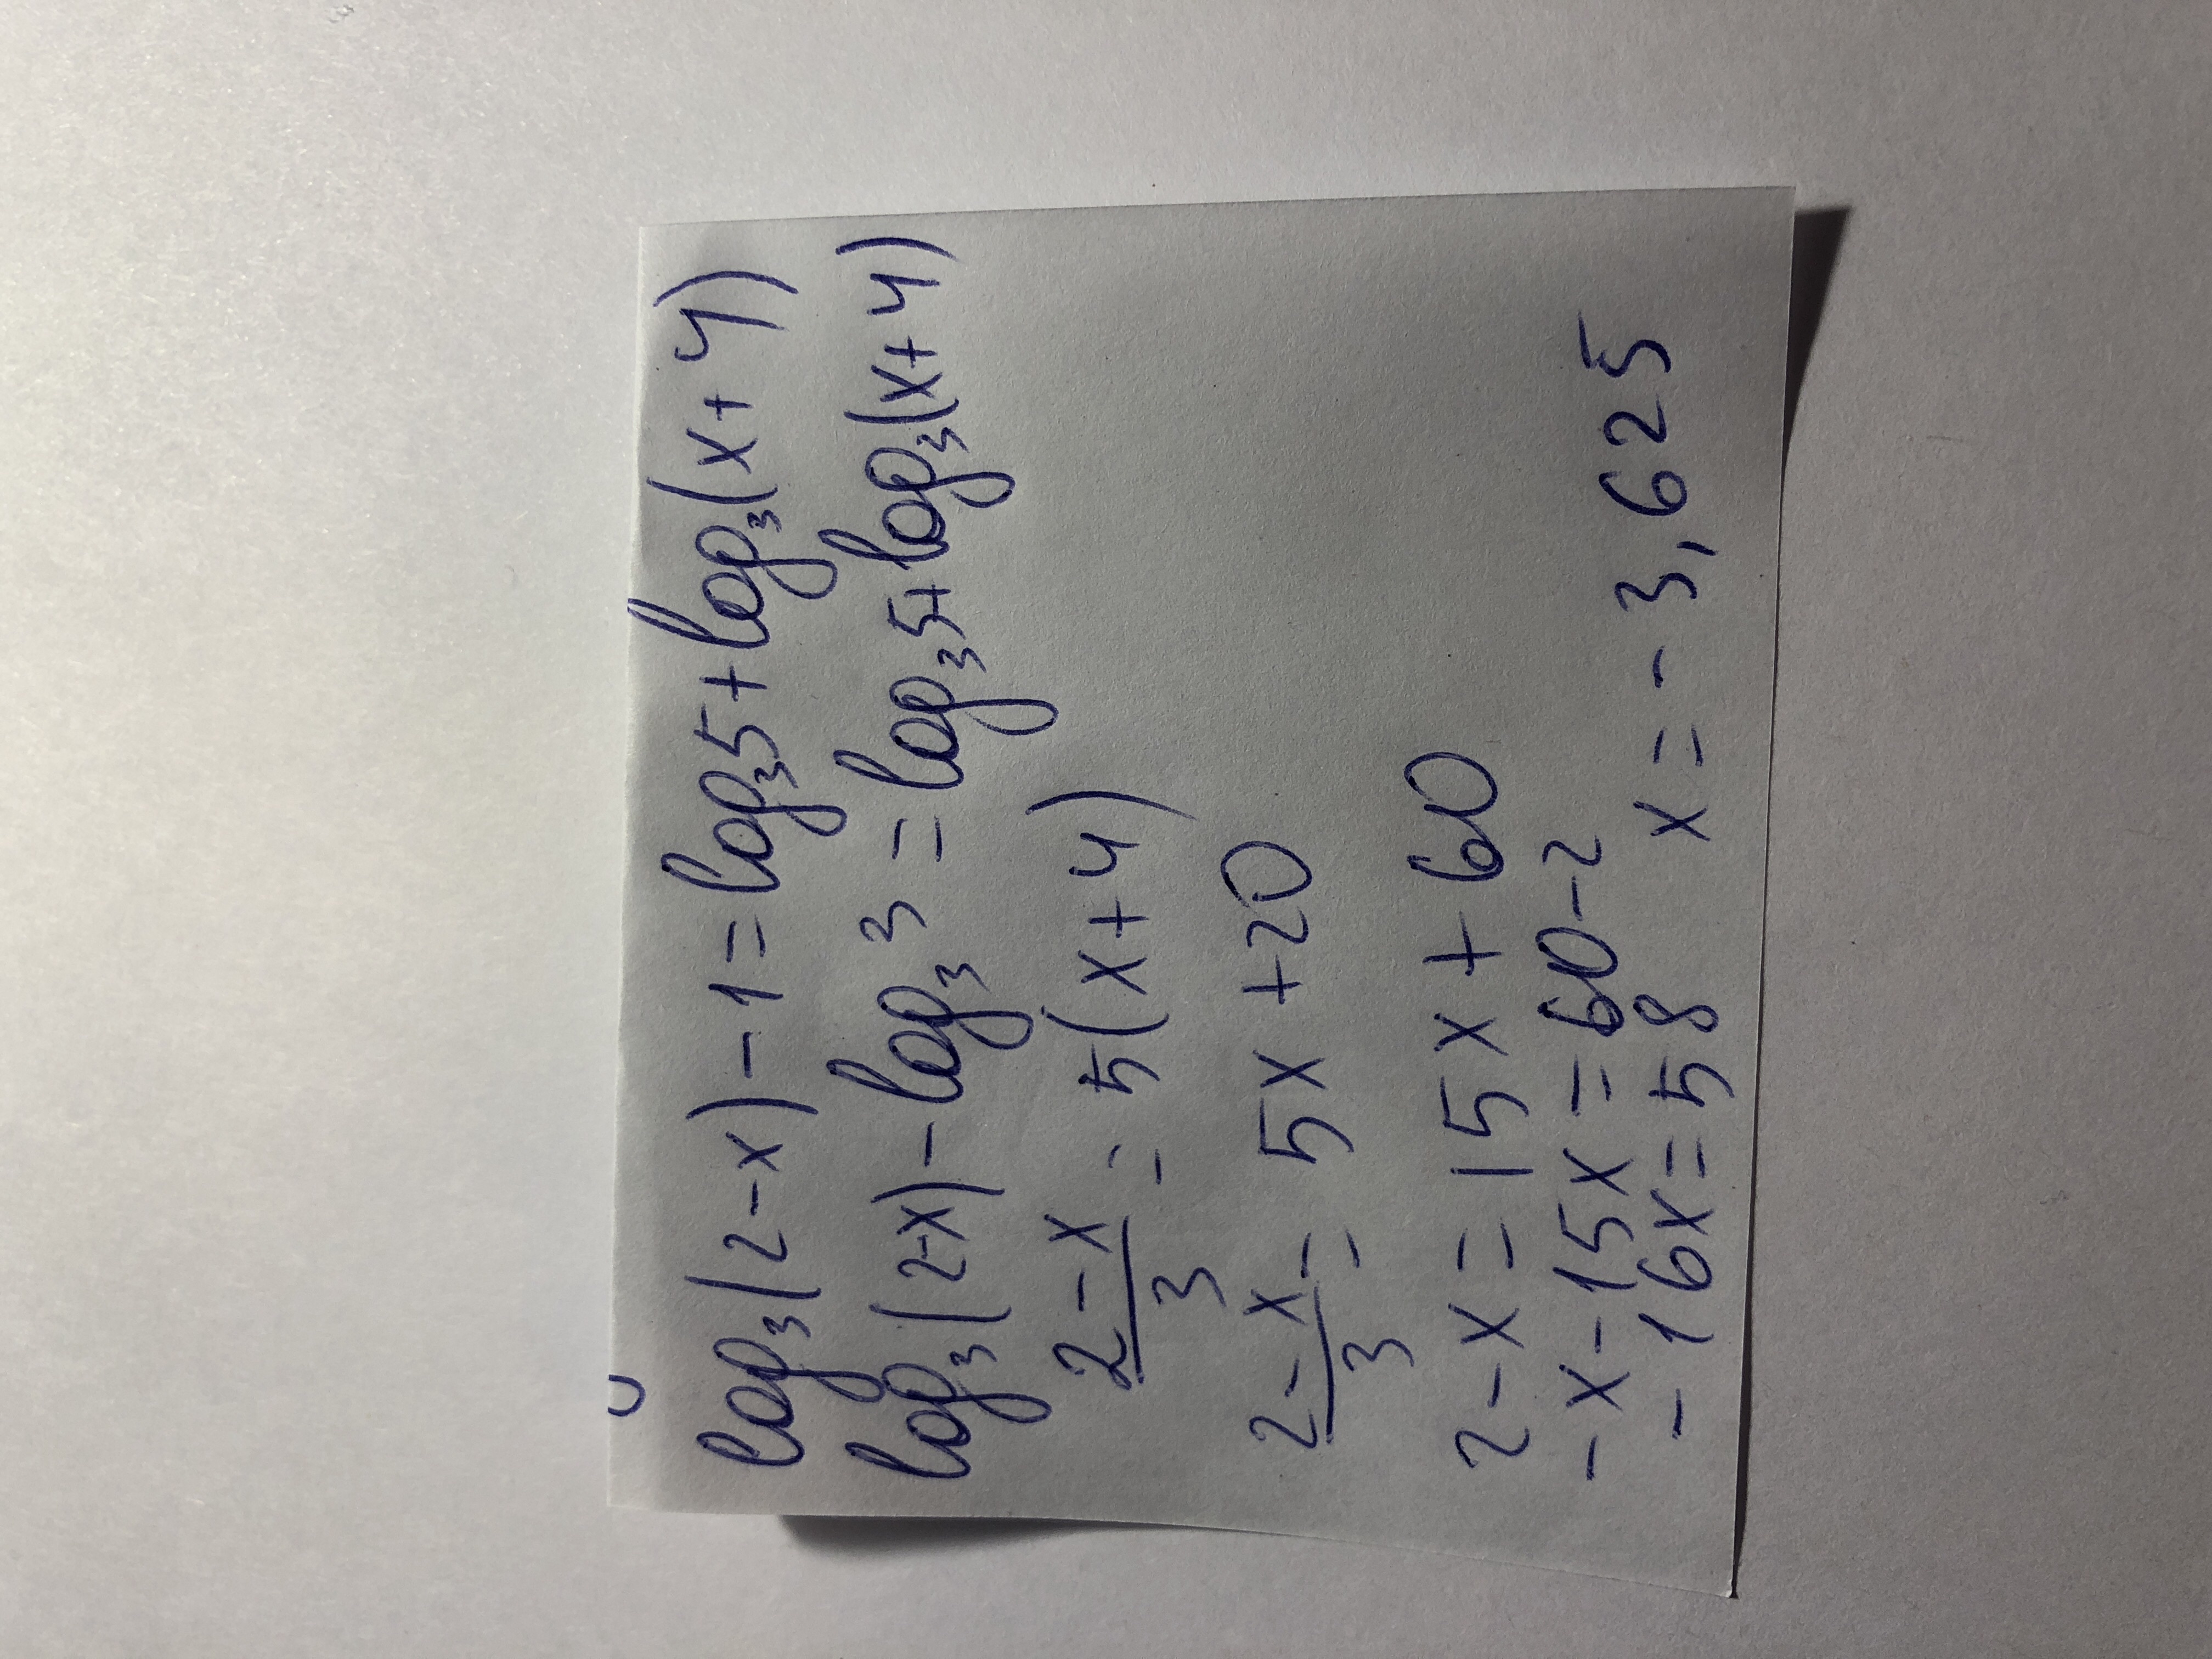 log₃(2-x)-1=log₃5+log₃(x+4)
log₃(2-x)-log₃3=log₃5+log₃(x+4)
2-x/3 = 5(x+4)
2-x/3 = 5x+20
2-x=15x+60
-x-15x=60-2
-16x=58 x=-3,625